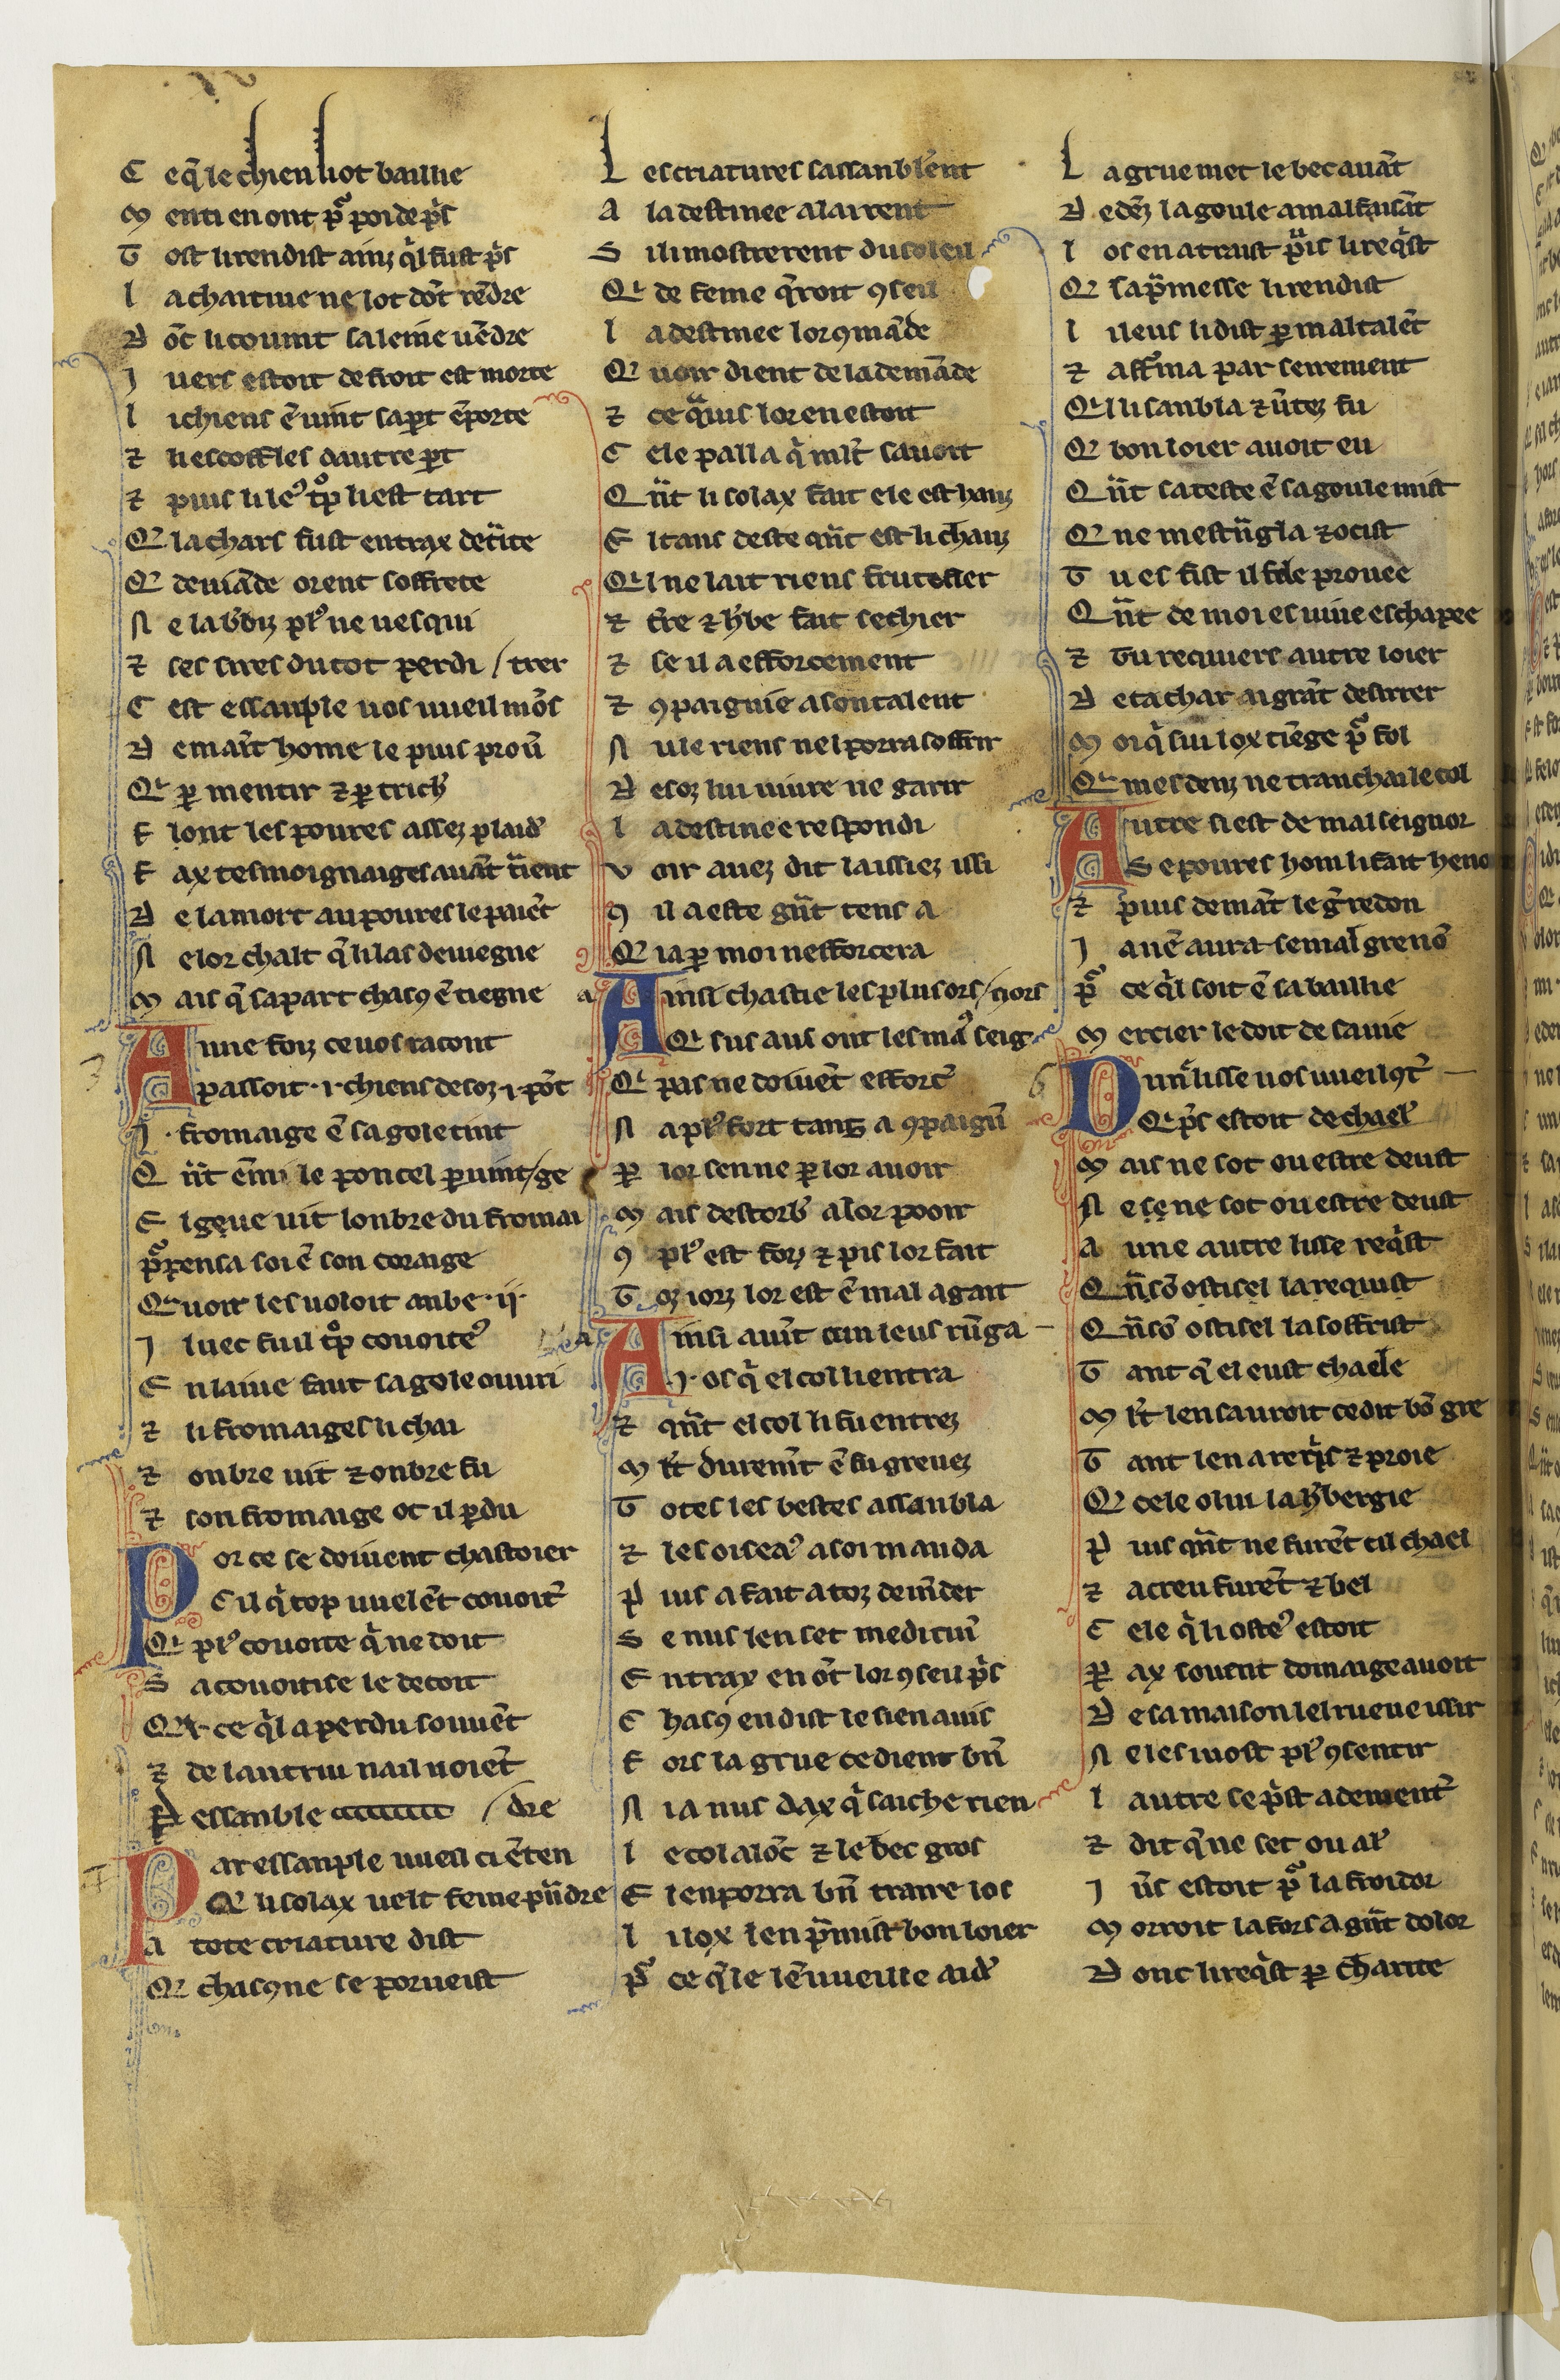 C eq̃ le chien li ot baillie
M enti en ont p̃ poi de p̃s
T ost li rendist ainz q̃l fust p̃s
L a chaitiue ne lot dōt rēdre
D ōc li couint sa leine uēdre
I uers estoit de froit est morte
L i chiens ē uint sa p̲t ēporte
⁊ li escoffles dautre p̲t
⁊ puis li leꝰ tͦp li est tart
Q̃ la chars fust entrax detͥite
Q̃ deuiāde orent soffrete
N e la b̾biz plꝰ ne uesqui
⁊ ses sires du tot perdi / trer
C est essanple uos uueil mōs
D e maīt home le puis prou̾
Q̃ p̲ mentir ⁊ p̲ trich̾
F l ont les poures assez plaid̾
F ax tesmoignaiges auāt tͥent
D e la mort au poures le paiēt
N e lor chalt q̃ li las deuiegne
M ais q̃ sa part chascꝰ ē tiegne
A une foiz ce uos racont
A passoit .i. chiens desoz .i. pōt
.I. fromaige ē sa gole tint
Q n̄t ēmi le poncel p̲uint / ge
E l geue uit lonbre du fromai
p̃ pensa soi ē son coraige
Q̃ uoir les uoloit anbe .ii.
I luec fu il tͦp couoiteꝰ
E n laiue faut sa gole ouuri
⁊ li fromaiges li chai
⁊ onbre uit ⁊ onbre fu
⁊ son fromaige ot il p̲du
P or ce se doiuent chastoier
C il q̃ trop uuelēt couoit̾
Q̃ plꝰ couoite q̃ ne doit
S a couoitise le decoit
Q̃ ce q̃l a perdu souuēt
⁊ de lautrui na il noiēt
P essanble / dre
P ar essanple uueil ci ēten
Q̃ li solax uelt feme pn̄dre
A tote criature dist
Q̃ chascune se porueist
L es criatures sassanblerent
A la destinee alairent
S i li mostrerent du soleil
Q̃ de feme q̃roit ꝯseil
L a destinee lor ꝯmāde
Q̃ uoir dient de la demāde
⁊ ce q̃ uis lor en estoit
C ele palla q̃ mlt̾ sauoit
Q n̄t li solax fait ele est hauz
E l tans deste qn̄t est li chauz
Q̃l ne lait riens frutefier
⁊ t̾re ⁊ h̾be fait sechier
⁊ se il a efforcement
⁊ ꝯpaignie a son talent
N ule riens nel porra soffrir
D esoz lui uiure ne garir
L a destinee respondi
V oir auez dit laissiez issi
C il a este gn̄t tens a
Q̃ ia p̲ moi nefforcera
A insi chastie les plusors / nors
Q̃ sus aus ont les ma̾ seig
Q̃ pas ne doiuēt efforc̾
N a plꝰ fort tanz a ꝯpaign̾
P̲ lor sen ne p̲ lor auoir
M ais destorb̾ a lor pooir
C plꝰ est forz ⁊ pis lor fait
T oz iorz lor est ē mal agait
A insi auīt cun leus rūga
.I. os q̃ el col li entra
⁊ qn̄t el col li fu entrez
M lt̾ durem̄t ē fu greuez
T otes les bestes assanbla
⁊ les oiseaꝰ a soi manda
P uis a fait a toz demāder
S e nus len set mediciu̾
E ntrax en ōt lor ꝯseil p̃s
C hascꝰ en dist le sien auis
F ors la grue ce dient bn̄
N i a nus dax q̃ saiche rien
L e col a lōc ⁊ le bec gros
E l en porra bn̄ traire los
L i lox len p̃mist bon loier
p̃ ce q̃le lē uueille aid̾
L a grue met le bec auāt
D edēz la goule a mal faisāt
L os en a traist p̃uis li req̃st
Q̃ sa p̃messe li rendist
L i leus li dist p̲ maltalēt
⁊ afferma par seirement
Q̃l li sanbla ⁊ u̾itez fu
Q̃ bon loier auoit eu
Q n̄t sa teste ē sa goule mist
Q̃ ne lestrāgla ⁊ ocist
T u es fist il fole prouee
Q n̄t de moi es uiue eschapee
⁊ tu requiers autre loier
D e ta char ai grāt desirrer
M oi q̃ sui lox tiēge p̃ fol
Q̃ mes denz ne trancha le col
A utresi est de mal seignor
S e poures hom li fait heno
⁊ puis demāt le g̃redon
I a nē aura se mal gre nō
p̃ ce q̃l soit ē sa baillie
M ercier le doit de sa uie
D une lisse uos uueil ꝯt̾
Q̃ p̃s estoit de chael̾
M ais ne sot ou estre deust
N e se ne sot ou estre deust
A une autre lisse req̃st
Q n̄ sō ostisel la requist
Q n̄ sō ostisel la soffrist
T ant q̃ el eust chaele
M lt̾ len sauroit ce dit bō gre
T ant len a req̃s ⁊ proie
Q̃ cele o lui la h̾bergie
P uis qn̄t ne furēt cil chael
⁊ acreu furēt ⁊ bel
C ele q̃ li osteꝰ estoit
P̲ ax souent domaige auoit
D e sa maison les rueue issir
N e les uost plꝰ ꝯsentir
L autre se p̃st a dement̾
⁊ dit q̃ ne set ou al̾
I u̾s estoit p̃ la froidor
M orroit la fors a gn̄t dolor
D onc li req̃st p̲ charite